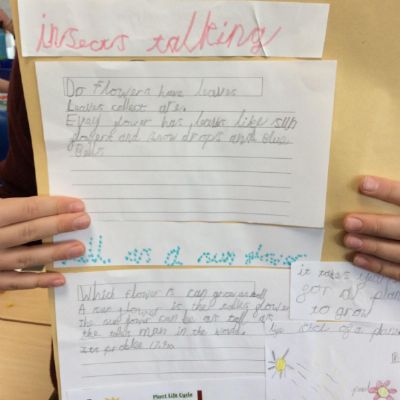 insects talking
Do flowers have leaves
Leaves collect are.
Evay flower has leaves like sun
flowers and snow drops and blue
Bells
tall as a sun flower
Which flower is can grow as tall
A sun flower is the tallis flower
the sun flower can be as tall as
the tallis man in the world.
it takes
got a plan
to grow
life cicel of a plant
Plant Life Cycle